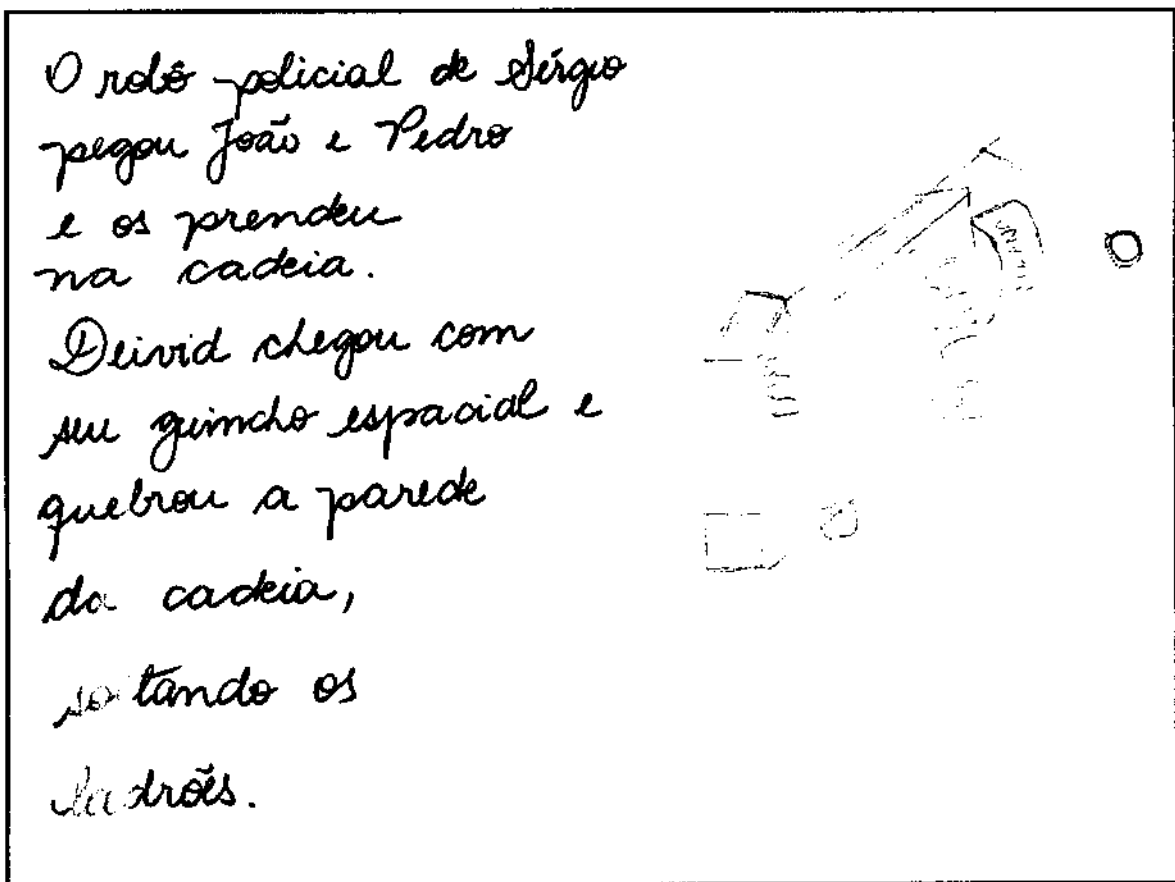 O robô policial de Sérgio
pegou João e Pedro
e os prendeu
na cadeia.
Deivid chegou com
seu guincho espacial e
quebrou a parede
da cadeia,
soltando os
ladrões.